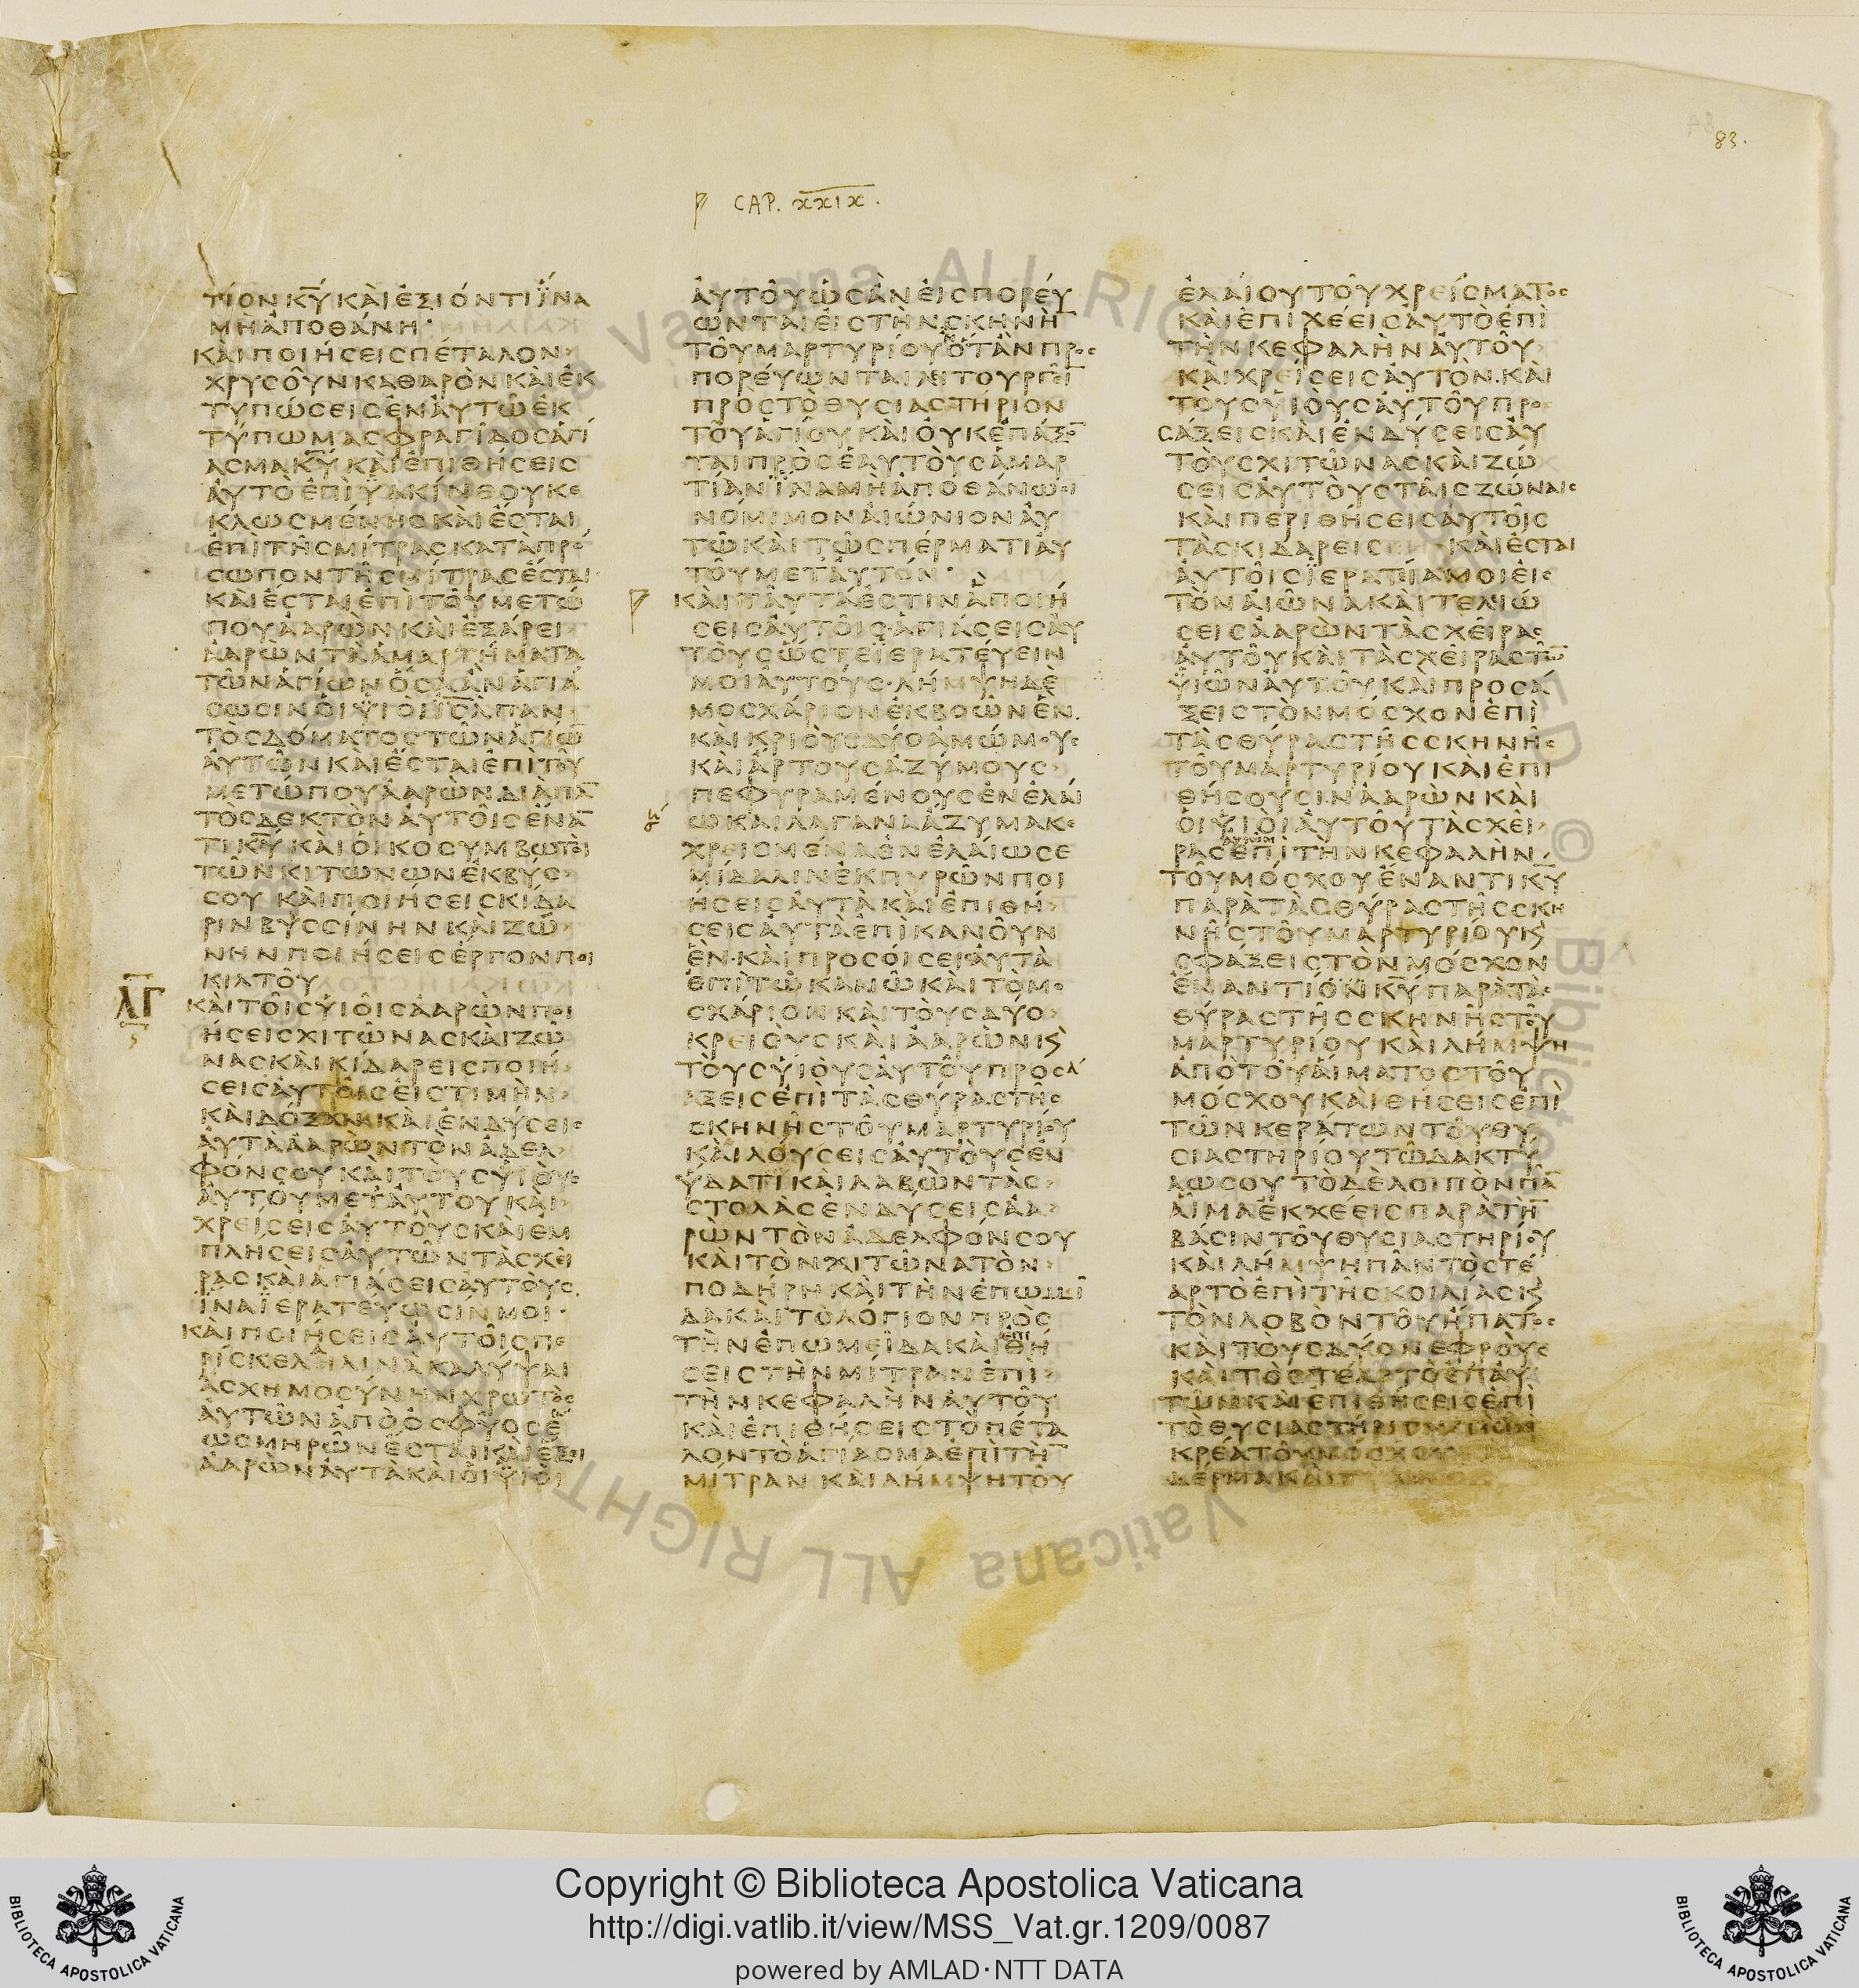 83.
CAP. XXIX.
ΤΙΟΝ ΚΥ ΚΑΙ ΕΞΙΟΝΤΙ ΙΝΑ
ΜΗ ΑΠΟΘΑΝΗ·
ΚΑΙ ΠΟΙΗΣΕΙΣ ΠΕΤΑΛΟΝ
ΧΡΥΣΟΥΝ ΚΑΘΑΡΟΝ ΚΑΙ ΕΚ
ΤΥΠΩΣΕΙΣ ΕΝ ΑΥΤΩ ΕΚ
ΤΥΠΩΜΑ ΣΦΡΑΓΙΔΟΣ ΑΓΙ
ΑΣΜΑ ΚΥ ΚΑΙ ΕΠΙΘΗΣΕΙΣ
ΑΥΤΟ ΕΠΙ ΥΑΚΙΝΘΟΥ ΚΕ
ΚΛΩΣΜΕΝΗΣ ΚΑΙ ΕΣΤΑΙ
ΕΠΙ ΤΗΣ ΜΙΤΡΑΣ ΚΑΤΑ ΠΡΟ
ΣΩΠΟΝ ΤΗΣ ΜΙΤΡΑΣ ΕΣΤΑΙ
ΚΑΙ ΕΣΤΑΙ ΕΠΙ ΤΟΥ ΜΕΤΩ
ΠΟΥ ΑΑΡΩΝ ΚΑΙ ΕΞΑΡΕΙ
ΑΑΡΩΝ ΤΑ ΑΜΑΡΤΗΜΑΤΑ
ΤΩΝ ΑΓΙΩΝ ΟΣΑ ΑΝ ΑΓΙΑ
ΣΩΣΙΝ ΟΙ ΥΙΟΙ ΙΣΛ ΠΑΝ
ΤΟΣ ΔΟΜΑΤΟΣ ΤΩΝ ΑΓΙΩ
ΑΥΤΩΝ ΚΑΙ ΕΣΤΑΙ ΕΠΙ ΤΟΥ
ΜΕΤΩΠΟΥ ΑΑΡΩΝ ΔΙΑ ΠΑ
ΤΟΣ ΔΕΚΤΟΝ ΑΥΤΟΙΣ ΕΝΑ
ΤΙ ΚΥ ΚΑΙ ΟΙ ΚΟΣΥΜΒΩΤΟΙ
ΤΩΝ ΚΙΤΩΝΩΝ ΕΚ ΒΥΣ
ΣΟΥ ΚΑΙ ΠΟΙΗΣΕΙΣ ΚΙΔΑ
ΡΙΝ ΒΥΣΣΙΝΗΝ ΚΑΙ ΖΩ
ΝΗΝ ΠΟΙΗΣΕΙΣ ΕΡΓΟΝ ΠΟΙ
ΚΙΛΤΟΥ
ΛΓ
ΚΑΙ ΤΟΙΣ ΥΙΟΙΣ ΑΑΡΩΝ ΠΟΙ
ΗΣΕΙΣ ΧΙΤΩΝΑΣ ΚΑΙ ΖΩ
ΝΑΣ ΚΑΙ ΚΙΔΑΡΕΙΣ ΠΟΙΗ
ΣΕΙΣ ΑΥΤΟΙΣ ΕΙΣ ΤΙΜΗΝ
ΚΑΙ ΔΟΞΑΝ ΚΑΙ ΕΝΔΥΣΕΙΣ
ΑΥΤΑ ΑΑΡΩΝ ΤΟΝ ΑΔΕΛ
ΦΟΝ ΣΟΥ ΚΑΙ ΤΟΥΣ ΥΙΟΥΣ
ΑΥΤΟΥ ΜΕΤ ΑΥΤΟΥ ΚΑΙ
ΧΡΕΙΣΕΙΣ ΑΥΤΟΥΣ ΚΑΙ ΕΜ
ΠΛΗΣΕΙΣ ΑΥΤΩΝ ΤΑΣ ΧΕΙ
ΡΑΣ ΚΑΙ ΑΓΙΑΣΕΙΣ ΑΥΤΟΥΣ
ΙΝΑ ΙΕΡΑΤΕΥΩΣΙΝ ΜΟΙ·
ΚΑΙ ΠΟΙΗΣΕΙΣ ΑΥΤΟΙΣ ΠΕ
ΡΙΣΚΕΛΗ ΛΙΝΑ ΚΑΛΥΨΑΙ
ΑΣΧΗΜΟΣΥΝΗΝ ΧΡΩΤΟΣ
ΑΥΤΩΝ ΑΠΟ ΟΣΦΥΟΣ Ε
ΩΣ ΜΗΡΩΝ ΕΣΤΑΙ ΚΑΙ ΕΞΕΙ
ΑΑΡΩΝ ΑΥΤΑ ΚΑΙ ΟΙ ΥΙΟΙ
ΑΥΤΟΥ ΩΣ ΑΝ ΕΙΣΠΟΡΕΥ
ΩΝΤΑΙ ΕΙΣ ΤΗΝ ΣΚΗΝΗ
ΤΟΥ ΜΑΡΤΥΡΙΟΥ Η ΟΤΑΝ ΠΡΟΣ
ΠΟΡΕΥΩΝΤΑΙ ΛΙΤΟΥΡΓΙ
ΠΡΟΣ ΤΟ ΘΥΣΙΑΣΤΗΡΙΟΝ
ΤΟΥ ΑΓΙΟΥ ΚΑΙ ΟΥΚ ΕΠΑΞΟ
ΤΑΙ ΠΡΟΣ ΕΑΥΤΟΥΣ ΑΜΑΡ
ΤΙΑΝ ΙΝΑ ΜΗ ΑΠΟΘΑΝΩΣΙ
ΝΟΜΙΜΟΝ ΑΙΩΝΙΟΝ ΑΥ
ΤΩ ΚΑΙ ΤΩ ΣΠΕΡΜΑΤΙ ΑΥ
ΤΟΥ ΜΕΤ ΑΥΤΟΝ·
ΚΑΙ ΤΑΥΤΑ ΕΣΤΙΝ Α ΠΟΙΗ
ΣΕΙΣ ΑΥΤΟΙΣ· ΑΓΙΑΣΕΙΣ ΑΥ
ΤΟΥΣ ΩΣΤΕ ΙΕΡΑΤΕΥΕΙΝ
ΜΟΙ ΑΥΤΟΥΣ· ΛΗΜΨΗ ΔΕ
ΜΟΣΧΑΡΙΟΝ ΕΚ ΒΟΩΝ ΕΝ
ΚΑΙ ΚΡΙΟΥΣ ΔΥΟ ΑΜΩΜΟΥΣ
ΚΑΙ ΑΡΤΟΥΣ ΑΖΥΜΟΥΣ
ΠΕΦΥΡΑΜΕΝΟΥΣ ΕΝ ΕΛΑΙ
Ω ΚΑΙ ΛΑΓΑΝΑ ΑΖΥΜΑ ΚΕ
ΧΡΕΙΣΜΕΝΑ ΕΝ ΕΛΑΙΩ ΣΕ
ΜΙΔΑΛΙΝ ΕΚ ΠΥΡΩΝ ΠΟΙ
ΗΣΕΙΣ ΑΥΤΑ ΚΑΙ ΕΠΙΘΗ
ΣΕΙΣ ΑΥΤΑ ΕΠΙ ΚΑΝΟΥΝ
ΕΝ· ΚΑΙ ΠΡΟΣΟΙΣΕΙΣ ΑΥΤΑ
ΕΠΙ ΤΩ ΚΑΝΩ ΚΑΙ ΤΟ ΜΟ
ΣΧΑΡΙΟΝ ΚΑΙ ΤΟΥΣ ΔΥΟ
ΚΡΕΙΟΥΣ ΚΑΙ ΑΑΡΩΝ Κ
ΤΟΥΣ ΥΙΟΥΣ ΑΥΤΟΥ ΠΡΟΣΑ
ΑΞΕΙΣ ΕΠΙ ΤΑΣ ΘΥΡΑΣ ΤΗΣ
ΣΚΗΝΗΣ ΤΟΥ ΜΑΡΤΥΡΙΟΥ
ΚΑΙ ΛΟΥΣΕΙΣ ΑΥΤΟΥΣ ΕΝ
ΥΔΑΤΙ ΚΑΙ ΛΑΒΩΝ ΤΑΣ
ΣΤΟΛΑΣ ΕΝΔΥΣΕΙΣ ΑΑ
ΡΩΝ ΤΟΝ ΑΔΕΛΦΟΝ ΣΟΥ
ΚΑΙ ΤΟΝ ΧΙΤΩΝΑ ΤΟΝ
ΠΟΔΗΡΗ ΚΑΙ ΤΗΝ ΕΠΩΜΙ
ΔΑ ΚΑΙ ΤΟ ΛΟΓΙΟΝ ΠΡΟΣ
ΤΗΝ ΕΠΩΜΕΙΔΑ ΚΑΙ ΕΠΙΘΗ
ΣΕΙΣ ΤΗΝ ΜΙΤΡΑΝ ΕΠΙ
ΤΗΝ ΚΕΦΑΛΗΝ ΑΥΤΟΥ
ΚΑΙ ΕΠΙΘΗΣΕΙΣ ΤΟ ΠΕΤΑ
ΛΟΝ ΤΟ ΑΓΙΑΣΜΑ ΕΠΙ ΤΗ
ΜΙΤΡΑΝ ΚΑΙ ΛΗΜΨΗ ΤΟΥ
ΕΛΑΙΟΥ ΤΟΥ ΧΡΕΙΣΜΑΤΟΣ
ΚΑΙ ΕΠΙΧΕΕΙΣ ΑΥΤΟ ΕΠΙ
ΤΗΝ ΚΕΦΑΛΗΝ ΑΥΤΟΥ
ΚΑΙ ΧΡΕΙΣΕΙΣ ΑΥΤΟΝ· ΚΑΙ
ΤΟΥΣ ΥΙΟΥΣ ΑΥΤΟΥ ΠΡΟΣ
ΑΞΕΙΣ ΚΑΙ ΕΝΔΥΣΕΙΣ ΑΥ
ΤΟΥΣ ΧΙΤΩΝΑΣ ΚΑΙ ΖΩ
ΣΕΙΣ ΑΥΤΟΥΣ ΤΑΙΣ ΖΩΝΑΙΣ
ΚΑΙ ΠΕΡΙΘΗΣΕΙΣ ΑΥΤΟΙΣ
ΤΑΣ ΚΙΔΑΡΕΙΣ ΚΑΙ ΕΣΤΑΙ
ΑΥΤΟΙΣ ΙΕΡΑΤΙΑ ΜΟΙ ΕΙΣ
ΤΟΝ ΑΙΩΝΑ ΚΑΙ ΤΕΛΙΩ
ΣΕΙΣ ΑΑΡΩΝ ΤΑΣ ΧΕΙΡΑΣ
ΑΥΤΟΥ ΚΑΙ ΤΑΣ ΧΕΙΡΑΣ ΤΩ
ΥΙΩΝ ΑΥΤΟΥ ΚΑΙ ΠΡΟΣΑ
ΞΕΙΣ ΤΟΝ ΜΟΣΧΟΝ ΕΠΙ
ΤΑΣ ΘΥΡΑΣ ΤΗΣ ΣΚΗΝΗΣ
ΤΟΥ ΜΑΡΤΥΡΙΟΥ ΚΑΙ ΕΠΙ
ΘΗΣΟΥΣΙΝ ΑΑΡΩΝ ΚΑΙ
ΟΙ ΥΙΟΙ ΑΥΤΟΥ ΤΑΣ ΧΕΙ
ΡΑΣ ΕΠΙ ΤΗΝ ΚΕΦΑΛΗΝ
ΤΟΥ ΜΟΣΧΟΥ ΕΝΑΝΤΙ ΚΥ
ΠΑΡΑ ΤΑΣ ΘΥΡΑΣ ΤΗΣ ΣΚΗ
ΝΗΣ ΤΟΥ ΜΑΡΤΥΡΙΟΥ Κ
ΣΦΑΞΕΙΣ ΤΟΝ ΜΟΣΧΟΝ
ΕΝΑΝΤΙΟΝ ΚΥ ΠΑΡΑ ΤΑΣ
ΘΥΡΑΣ ΤΗΣ ΣΚΗΝΗΣ ΤΟΥ
ΜΑΡΤΥΡΙΟΥ ΚΑΙ ΛΗΜΨΗ
ΑΠΟ ΤΟΥ ΑΙΜΑΤΟΣ ΤΟΥ
ΜΟΣΧΟΥ ΚΑΙ ΘΗΣΕΙΣ ΕΠΙ
ΤΩΝ ΚΕΡΑΤΩΝ ΤΟΥ ΘΥ
ΣΙΑΣΤΗΡΙΟΥ ΤΩ ΔΑΚΤΥ
ΛΩ ΣΟΥ ΤΟ ΔΕ ΛΟΙΠΟΝ ΠΑ
ΑΙΜΑ ΕΚΧΕΕΙΣ ΠΑΡΑ ΤΗ
ΒΑΣΙΝ ΤΟΥ ΘΥΣΙΑΣΤΗΡΙΟΥ
ΚΑΙ ΛΗΜΨΗ ΠΑΝ ΤΟ ΣΤΕ
ΑΡ ΤΟ ΕΠΙ ΤΗΣ ΚΟΙΛΙΑΣ Κ
ΤΟΝ ΛΟΒΟΝ ΤΟΥ ΗΠΑΤΟΣ
ΚΑΙ ΤΟΥΣ ΔΥΟ ΝΕΦΡΟΥΣ
ΚΑΙ ΤΟ ΣΤΕΑΡ ΤΟ ΕΠ ΑΥ
ΤΩΝ ΚΑΙ ΕΠΙΘΗΣΕΙΣ ΕΠΙ
ΤΟ ΘΥΣΙΑΣΤΗΡΙΟΝ
ΚΡΕΑ ΤΟΥ ΜΟΣΧΟΥ
ΔΕΡΜΑ ΚΑΙ
Copyright © Biblioteca Apostolica Vaticana
http://digi.vatlib.it/view/MSS_Vat.gr.1209/0087
powered by AMLAD·NTT DATA
BIBLIOTECA APOSTOLICA VATICANA
BIBLIOTECA APOSTOLICA VATICANA